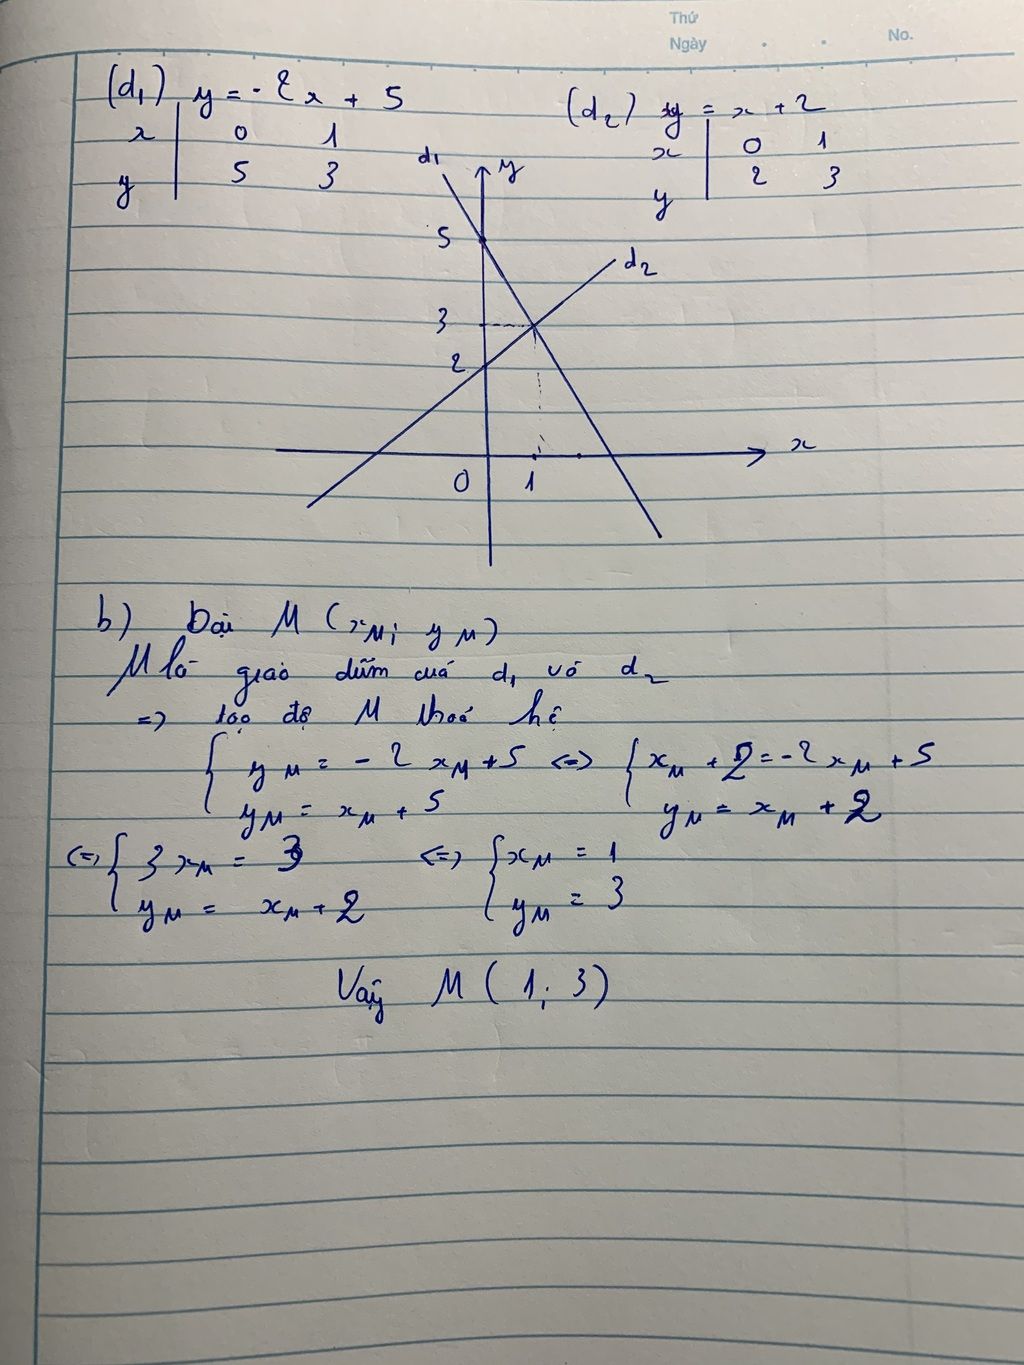 Thứ
Ngày . . No.
(d₁) y = -2x + 5
x | 0 1
y | 5 3
(d₂) y = x + 2
x | 0 1
y | 2 3
d₁
y
5
d₂
3
2
x
0 1
b) Gọi M (xM; yM)
M là giao điểm của d₁ và d₂
=> tọa độ M thoả hệ
{ yM = -2xM + 5 <=> { xM + 2 = -2xM + 5
yM = xM + 5 yM = xM + 2
<=> { 3xM = 3 <=> { xM = 1
yM = xM + 2 yM = 3
Vậy M (1; 3)